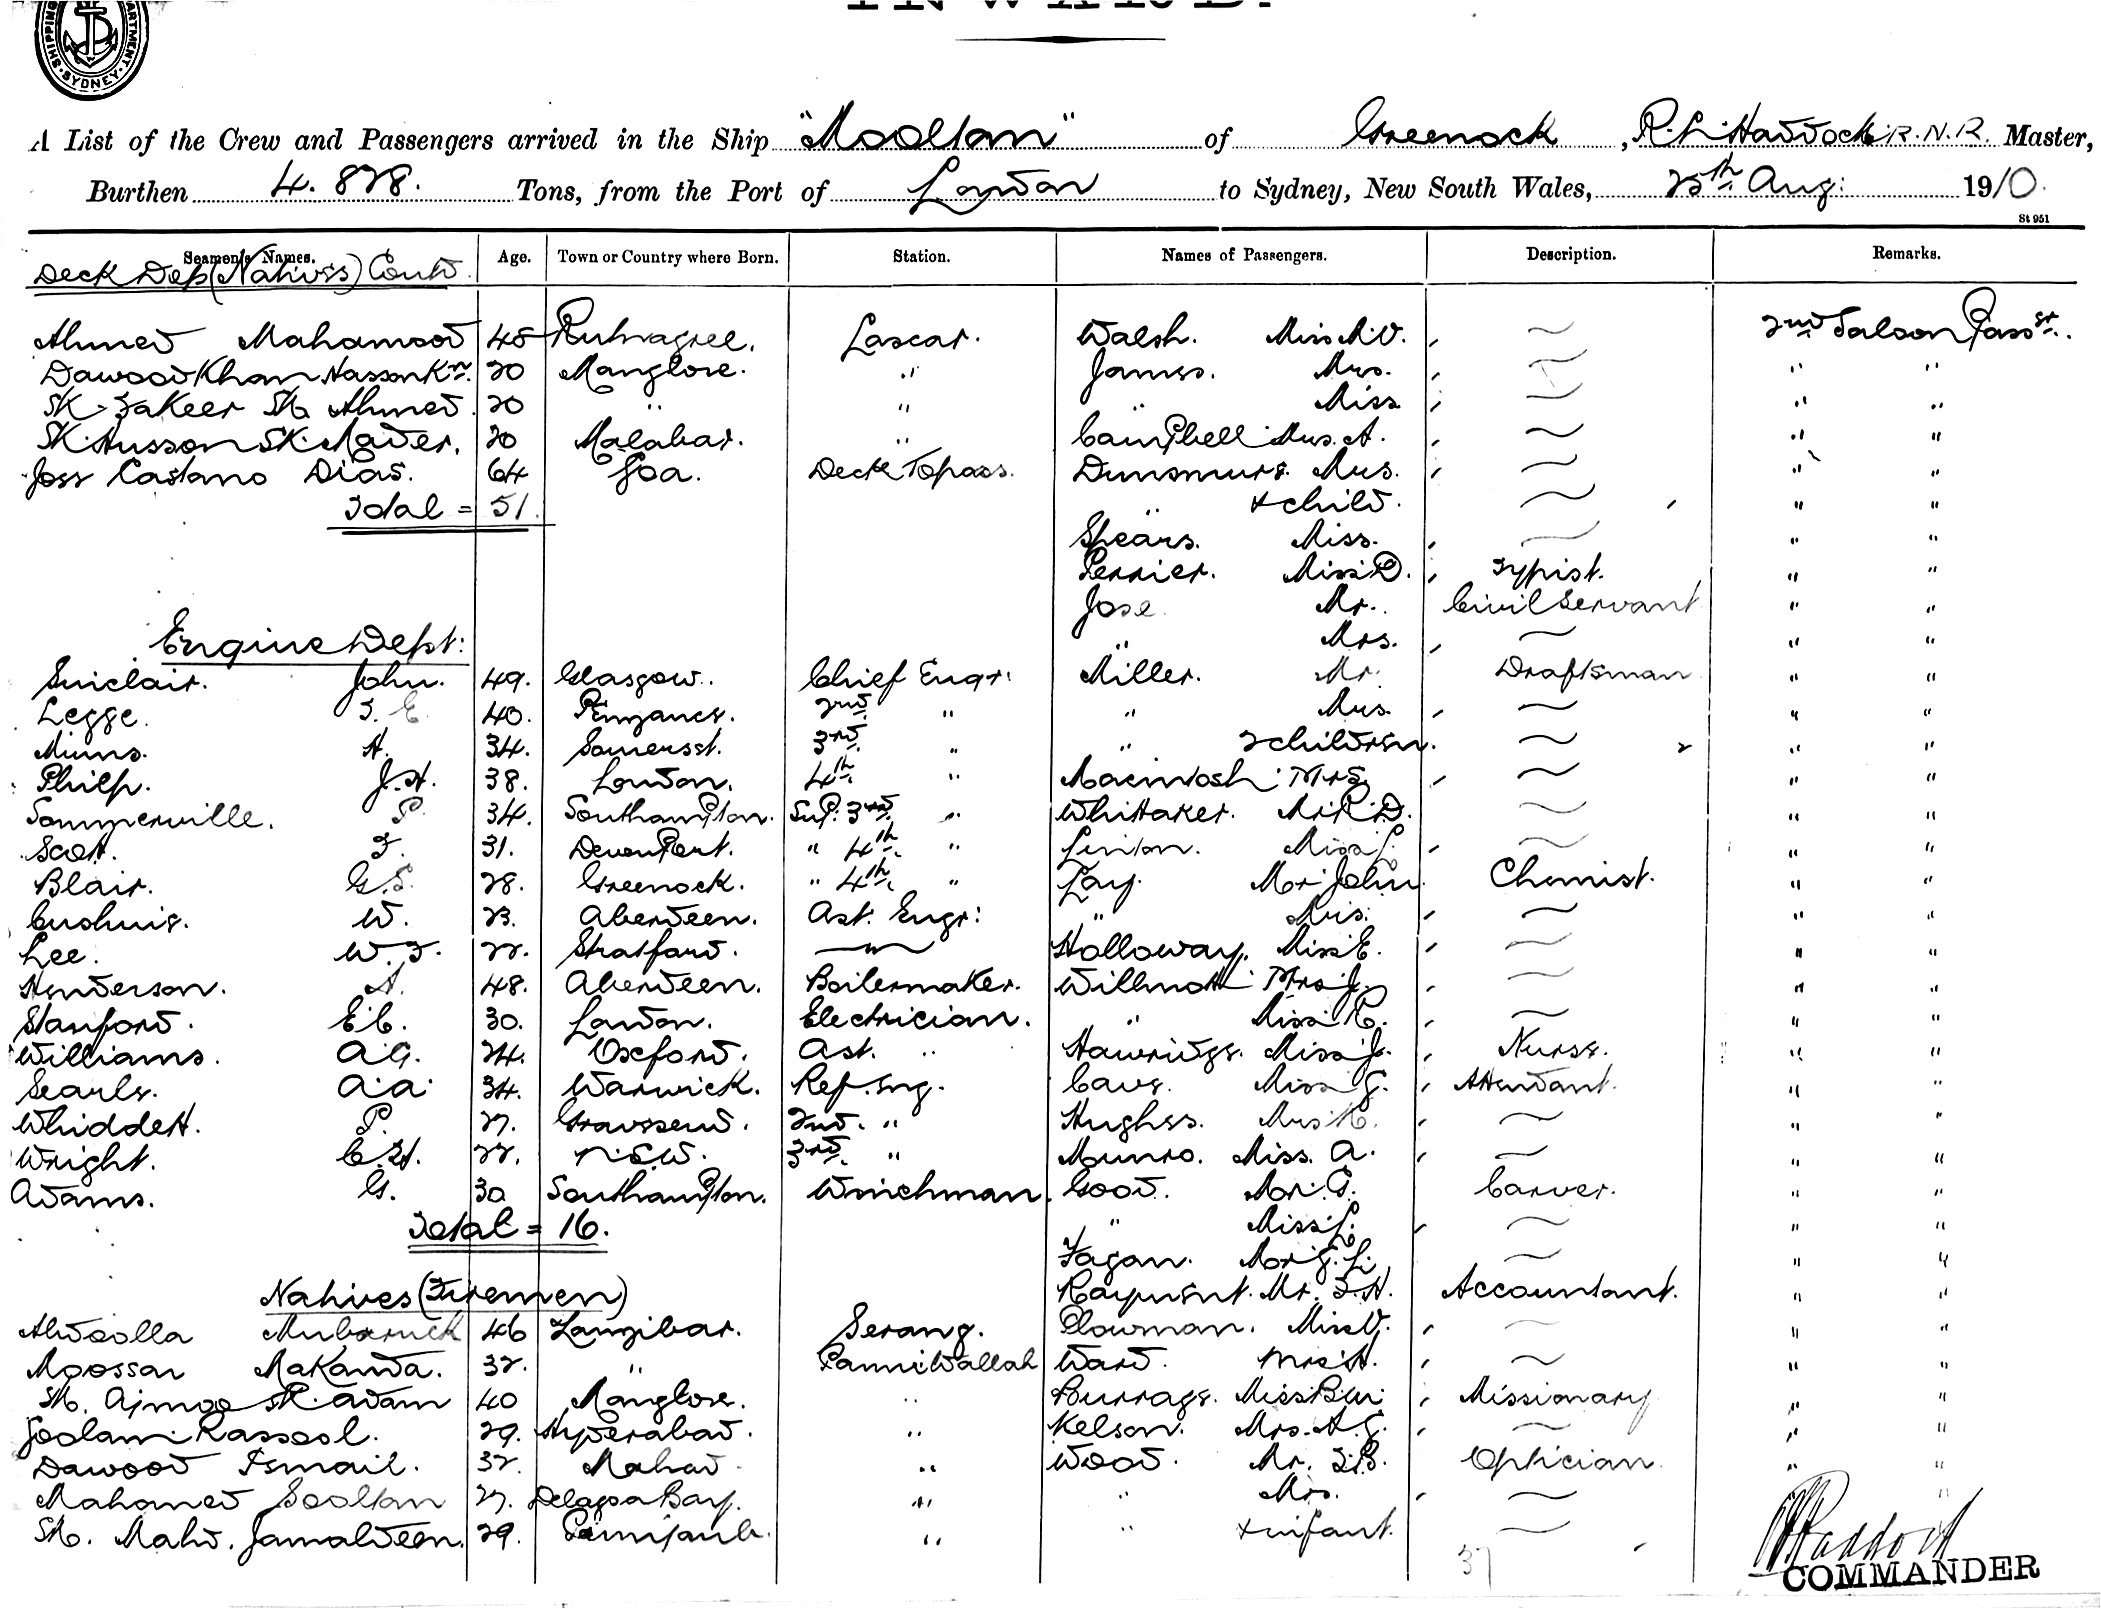 INWARD.
SHIPPING DEPARTMENT. SYDNEY.
A List of the Crew and Passengers arrived in the Ship "Mooltan" of Greenock, R. L. Haddock R.N.R. Master,
Burthen 4.828. Tons, from the Port of London to Sydney, New South Wales, 25th Aug: 1910.
St 951
Seamen's Names. Age. Town or Country where Born. Station. Names of Passengers. Description. Remarks.
Deck Dep (Natives) Contd.
Ahmed Mahamood 45 Lascar. Walsh. Miss M.V. 2nd Saloon Passr.
Dawood Khan Hasson Kn. 20 Manglore. " James. Mrs. " "
SK. Zakeer Sk. Ahmed. 20 " " " Miss " "
SK. Husson SK. Mader. 20 Malabar. " Campbell Mrs. A. " "
Joss Castano Dias. 64 Goa. Deck Topass. Dunsmure. Mrs. " "
Total = 51. " & child. " "
Spears. Miss. " "
Perrier. Miss D. Typist. " "
Jose Mr. Civil Servant " "
Engine Dept: " Mrs. " "
Sinclair. John. 49. Glasgow. Chief Engr: Miller. Mr. Draftsman " "
Legge. T. E. 40. Penzance. 2nd. " " Mrs. " "
Mims. A. 34. Somerset. 3rd. " " 2 children. 2 " "
Philp. J. A. 38. London. 4th. " Macintosh Mrs. " "
Sommerville. P. 34. Southampton. Sup. 3rd. " Whittaker. Mr. R. D. " "
Scott. F. 31. Devonport. " 4th. " Linton. Miss L. " "
Blair. G. S. 28. Greenock. " 4th. " Lay. Mr John Chemist. " "
W. 23. Aberdeen. Ast. Engr: " Mrs. " "
Lee. W. F. 22. Stratford. Holloway. Miss E. " "
Henderson. A. 48. Aberdeen. Boilermaker. Willmott Mrs J. " "
Stanford. E. C. 30. London. Electrician. " Miss K. " "
Williams. A. G. 24. Oxford. Ast. " Hawridge. Miss J. Nurse. " "
Searle. A. A. 34. Warwick. Ref. Eng. Cave. Miss G. Attendant. " "
Whiddett. P. 27. Gravesend. 2nd. " Hughes. Mrs K. " "
Wright. C. H. 22. N.S.W. 3rd. " Munro. Miss. A. " "
Adams. G. 30 Southampton. Winchman. Good. Mr. G. Carver. " "
Total = 16. " Miss L. " "
Fagan. Mr. G. L. " "
Natives (Firemen) Rayment. Mr. F. H. Accountant. " "
Abdoolla Mubaruck 46 Zanzibar. Serang. Plowman. Miss V. " "
Moossan Makanda. 32. " Panniwallah Ward. Mrs A. " "
Sk. Ajmoo SK. Adam 40 Manglore. " Burrage. Miss Missionary " "
Goolam Rassool. 29. Hyderabad. " Kelson. Mrs. A. G. " "
Dawood Ismail. 32. Mahad. " Wood. Mr. F. B. Optician. " "
Mahomed Sooltan 27. Delagoa Bay. " " Mrs. "
Sk. Mahd. Jamaldeen. 29. " " & infant.
37
Haddock
COMMANDER